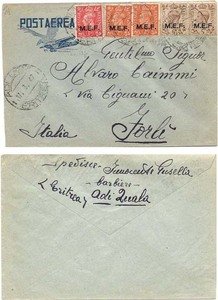 POSTAEREA
M.E.F. M.E.F. M.E.F. M.E.F. M.E.F.
Gentilmo Signor
Alvaro Caimmi
(via Cignani 20)
Italia Forlì
Spedisce: Innocenti Gusella
barbiere
(Eritrea) Adi Quala